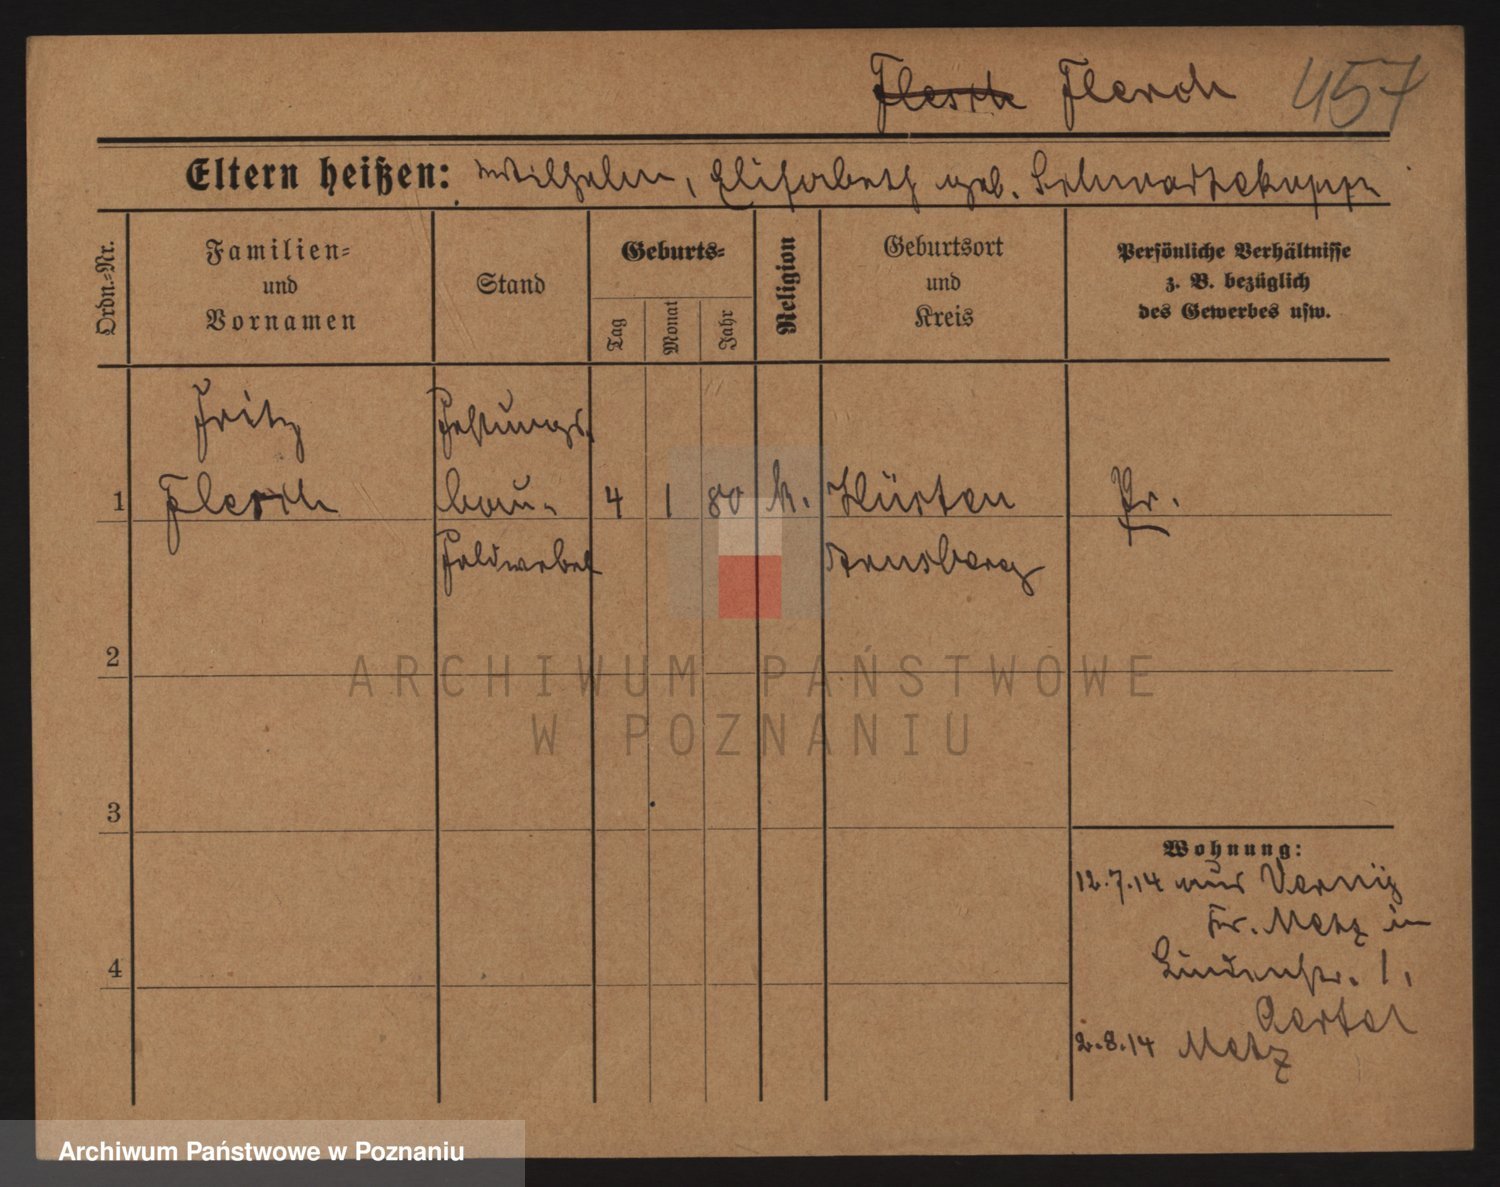 Flesch Flesch 457
Eltern heißen: Wilhelm, Elisabeth geb. Schwartekopp
Ordn.-Nr.
Familien-
und
Vornamen
Stand
Geburts-
Tag
Monat
Jahr
Religion
Geburtsort
und
Kreis
Persönliche Verhältnisse
z. B. bezüglich
des Gewerbes usw.
Fritz
Flesch
Festungs-
bau-
Feldwebel
1
4 1 80 k.
Hüsten
Arnsberg
Pr.
2
3
4
Wohnung:
12.7.14 aus
Kr. Metz in
Lindenstr. 1,
Oertel
2.8.14 Metz
ARCHIWUM PAŃSTWOWE
W POZNANIU
Archiwum Państwowe w Poznaniu